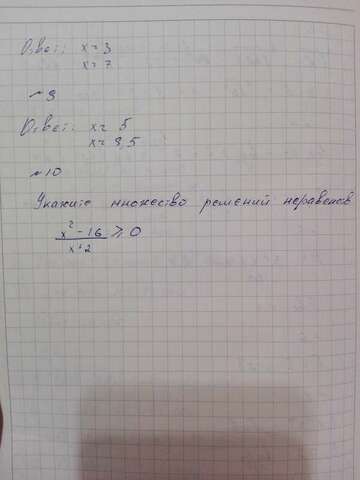 Ответ: x = 3
x = 7
~ 9
Ответ: x = 5
x = 3,5
~ 10
Укажите множество решений неравенств
x² - 16 ≥ 0
x + 2